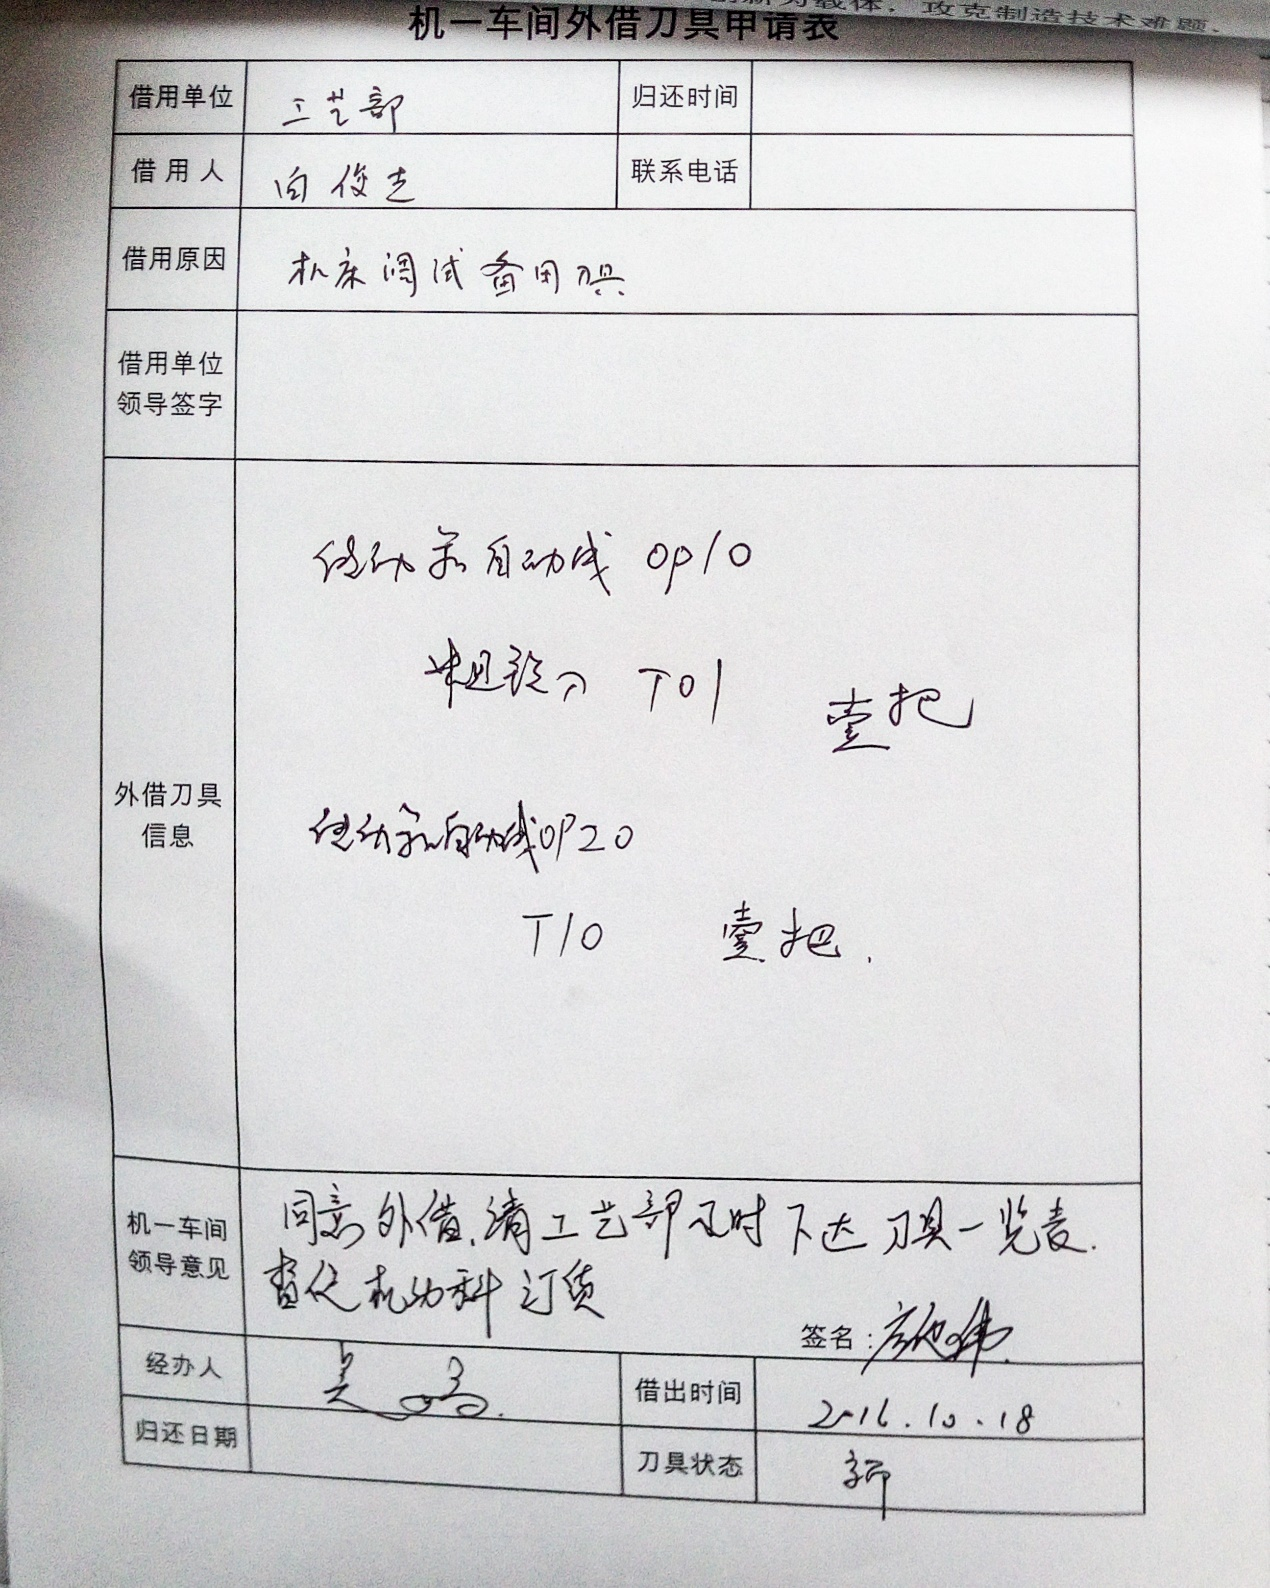 创新为载体，攻克制造技术难题。
机一车间外借刀具申请表
借用单位 工艺部 归还时间
借用人 向俊志 联系电话
借用原因 机床调试备用刀具.
借用单位
领导签字
传动系自动线 OP10
粗镗刀 T01 壹把
外借刀具
信息
传动系自动线OP20
T10 壹把.
机一车间
领导意见
同意外借,请工艺部及时下达刀具一览表.
督促机动科订货
签名:
经办人 吴 借出时间 2016.10.18
归还日期 刀具状态 新